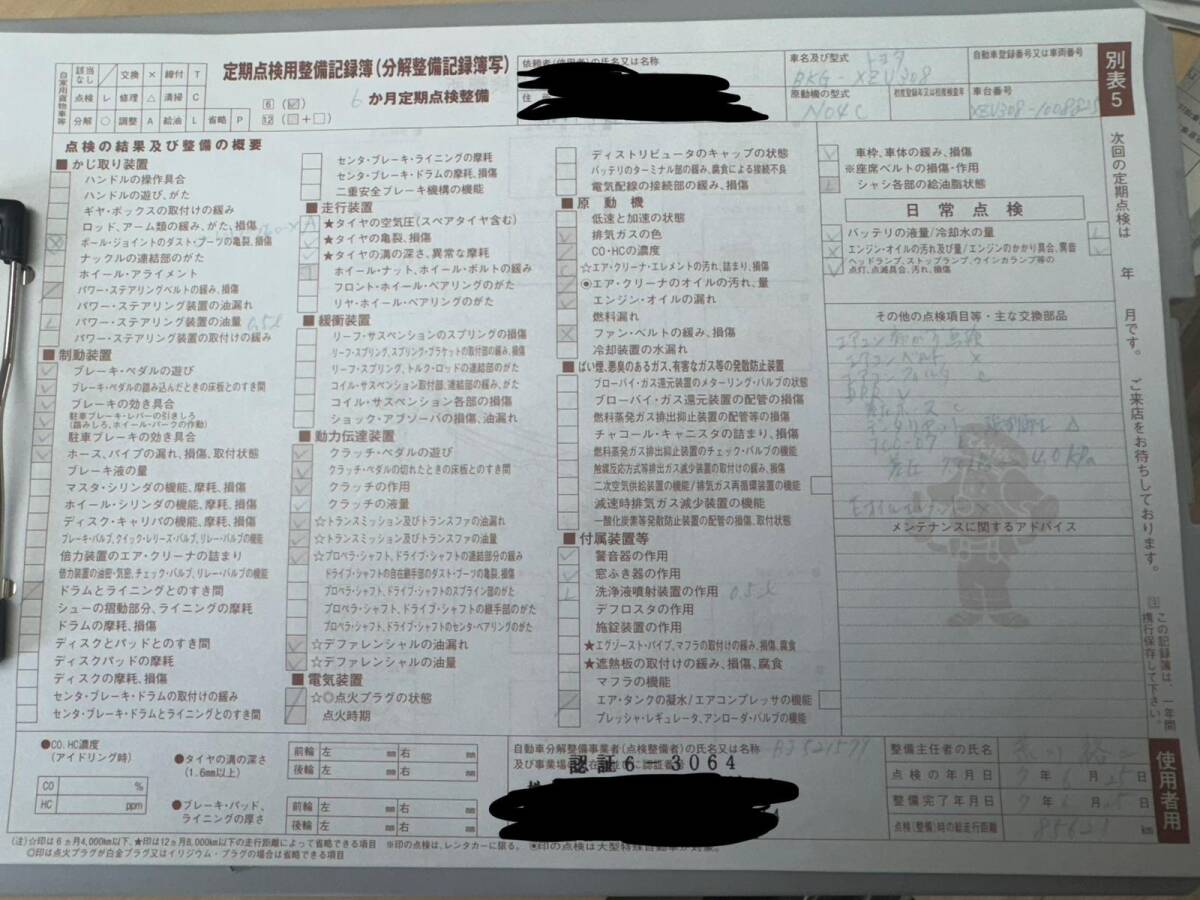 自家用貨物車等
該当なし ／ 交換 × 締付 T
点検 レ 修理 △ 清掃 C
分解 ○ 調整 A 給油 L 省略 P
定期点検用整備記録簿(分解整備記録簿写)
6
12
6 か月定期点検整備
依頼者(使用者)の氏名又は名称
住
車名及び型式 トヨタ
BKG-XZU308
自動車登録番号又は車両番号
原動機の型式 N04C
初度登録年又は初度検査年
車台番号
別表5
点検の結果及び整備の概要
■かじ取り装置
ハンドルの操作具合
ハンドルの遊び、がた
ギヤ・ボックスの取付けの緩み
ロッド、アーム類の緩み、がた、損傷
ボール・ジョイントのダスト・ブーツの亀裂、損傷
ナックルの連結部のがた
ホイール・アライメント
パワー・ステアリングベルトの緩み、損傷
パワー・ステアリング装置の油漏れ
パワー・ステアリング装置の油量 0.5ℓ
パワー・ステアリング装置の取付けの緩み
■制動装置
ブレーキ・ペダルの遊び
ブレーキ・ペダルの踏み込んだときの床板とのすき間
ブレーキの効き具合
駐車ブレーキ・レバーの引きしろ
(踏みしろ、ホイール・パークの作動)
駐車ブレーキの効き具合
ホース、パイプの漏れ、損傷、取付状態
ブレーキ液の量
マスタ・シリンダの機能、摩耗、損傷
ホイール・シリンダの機能、摩耗、損傷
ディスク・キャリパの機能、摩耗、損傷
ブレーキ・バルブ、クイック・レリーズ・バルブ、リレー・バルブの機能
倍力装置のエア・クリーナの詰まり
倍力装置の油密・気密、チェック・バルブ、リレー・バルブの機能
ドラムとライニングとのすき間
シューの摺動部分、ライニングの摩耗
ドラムの摩耗、損傷
ディスクとパッドとのすき間
ディスクパッドの摩耗
ディスクの摩耗、損傷
センタ・ブレーキ・ドラムの取付けの緩み
センタ・ブレーキ・ドラムとライニングとのすき間
センタ・ブレーキ・ライニングの摩耗
センタ・ブレーキ・ドラムの摩耗、損傷
二重安全ブレーキ機構の機能
■走行装置
★タイヤの空気圧(スペアタイヤ含む)
★タイヤの亀裂、損傷
★タイヤの溝の深さ、異常な摩耗
ホイール・ナット、ホイール・ボルトの緩み
フロント・ホイール・ベアリングのがた
リヤ・ホイール・ベアリングのがた
■緩衝装置
リーフ・サスペンションのスプリングの損傷
リーフ・スプリング、スプリング・ブラケットの取付部の緩み、損傷
リーフ・スプリング、トルク・ロッドの連結部のがた
コイル・サスペンション取付部、連結部の緩み、がた
コイル・サスペンション各部の損傷
ショック・アブソーバの損傷、油漏れ
■動力伝達装置
クラッチ・ペダルの遊び
クラッチ・ペダルの切れたときの床板とのすき間
クラッチの作用
クラッチの液量
☆トランスミッション及びトランスファの油漏れ
☆トランスミッション及びトランスファの油量
☆プロペラ・シャフト、ドライブ・シャフトの連結部分の緩み
ドライブ・シャフトの自在継手部のダスト・ブーツの亀裂、損傷
プロペラ・シャフト、ドライブ・シャフトのスプライン部のがた
プロペラ・シャフト、ドライブ・シャフトの継手部のがた
プロペラ・シャフト、ドライブ・シャフトのセンタ・ベアリングのがた
☆デファレンシャルの油漏れ
☆デファレンシャルの油量
■電気装置
☆◎点火プラグの状態
点火時期
ディストリビュータのキャップの状態
バッテリのターミナル部の緩み、腐食による接続不良
電気配線の接続部の緩み、損傷
■原動機
低速と加速の状態
排気ガスの色
CO・HCの濃度
☆エア・クリーナ・エレメントの汚れ、詰まり、損傷
◉エア・クリーナのオイルの汚れ、量
エンジン・オイルの漏れ
燃料漏れ
ファン・ベルトの緩み、損傷
冷却装置の水漏れ
■ばい煙、悪臭のあるガス、有害なガス等の発散防止装置
ブローバイ・ガス還元装置のメターリング・バルブの状態
ブローバイ・ガス還元装置の配管の損傷
燃料蒸発ガス排出抑止装置の配管等の損傷
チャコール・キャニスタの詰まり、損傷
燃料蒸発ガス排出抑止装置のチェック・バルブの機能
触媒反応方式等排出ガス減少装置の取付けの緩み、損傷
二次空気供給装置の機能/排気ガス再循環装置の機能
減速時排気ガス減少装置の機能
一酸化炭素等発散防止装置の配管の損傷、取付状態
■付属装置等
警音器の作用
窓ふき器の作用
洗浄液噴射装置の作用 0.5ℓ
デフロスタの作用
施錠装置の作用
★エグゾースト・パイプ、マフラの取付けの緩み、損傷、腐食
★遮熱板の取付けの緩み、損傷、腐食
マフラの機能
エア・タンクの凝水/エアコンプレッサの機能
プレッシャ・レギュレータ、アンローダ・バルブの機能
車枠、車体の緩み、損傷
※座席ベルトの損傷・作用
シャシ各部の給油脂状態
日常点検
バッテリの液量/冷却水の量
エンジン・オイルの汚れ及び量/エンジンのかかり具合、異音
ヘッドランプ、ストップランプ、ウインカランプ等の
点灯、点滅具合、汚れ、損傷
その他の点検項目等・主な交換部品
エアコンベルト ×
エアコンフィルタ C
4.0 kPa
メンテナンスに関するアドバイス
次回の定期点検は 年 月です。ご来店をお待ちしております。
注 この記録簿は、一年間携行保存して下さい。
使用者用
●CO、HC濃度
(アイドリング時)
CO %
HC ppm
●タイヤの溝の深さ
(1.6mm以上)
前輪 左 mm 右 mm
後輪 左 mm 右 mm
●ブレーキ・パッド、
ライニングの厚さ
前輪 左 mm 右 mm
後輪 左 mm 右 mm
自動車分解整備事業者(点検整備者)の氏名又は名称
及び事業場
認証6-3064
整備主任者の氏名
点検の年月日 7 年 6 月 25 日
整備完了年月日 7 年 6 月 25 日
点検(整備)時の総走行距離 85621 km
(注)☆印は6ヵ月4,000km以下、★印は12ヵ月8,000km以下の走行距離によって省略できる項目 ※印は、レンタカーに限る。 ◉印の点検は大型特殊自動車が対象。
◎印は点火プラグが白金プラグ又はイリジウム・プラグの場合は省略できる項目